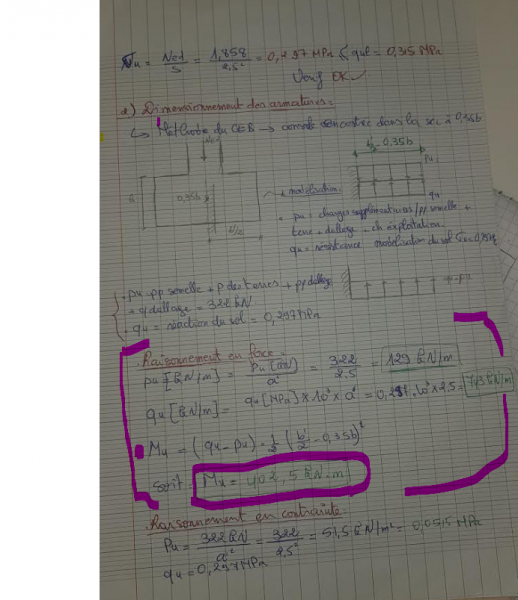 σu = Ned/S = 1,858/2,5² = 0,297 MPa ≤ qult = 0,315 MPa
OK ✓
2) Dimensionnement des armatures :
↳ Méthode du CEB → console dans la à 0,35b
0,35b
0,35b
→ modélisation.
pu
qu
• pu = charges supplémentaires / pp semelle +
terre + dallage + ch exploitation
qu = résistance du sol
• pu = pp semelle + p des terres + pp dallage
+ q dallage = 322 kN
• qu = réaction du sol = 0,297 MPa
Raisonnement en force :
pu [kN/m] = pu [kN]/a' = 322/2.5 = 129 kN/m
qu [kN/m] = qu [MPa] × 10³ × a' = 0,297·10³ × 2,5 = 743 kN/m
• Mu = (qu - pu) · 1/2 (b'/2 - 0,35b)²
soit : Mu = 402,5 kN.m
Raisonnement en contrainte
Pu = 322 kN/a'² = 322/2.5² = 51,5 kN/m² = 0,0515 MPa
qu = 0,297 MPa